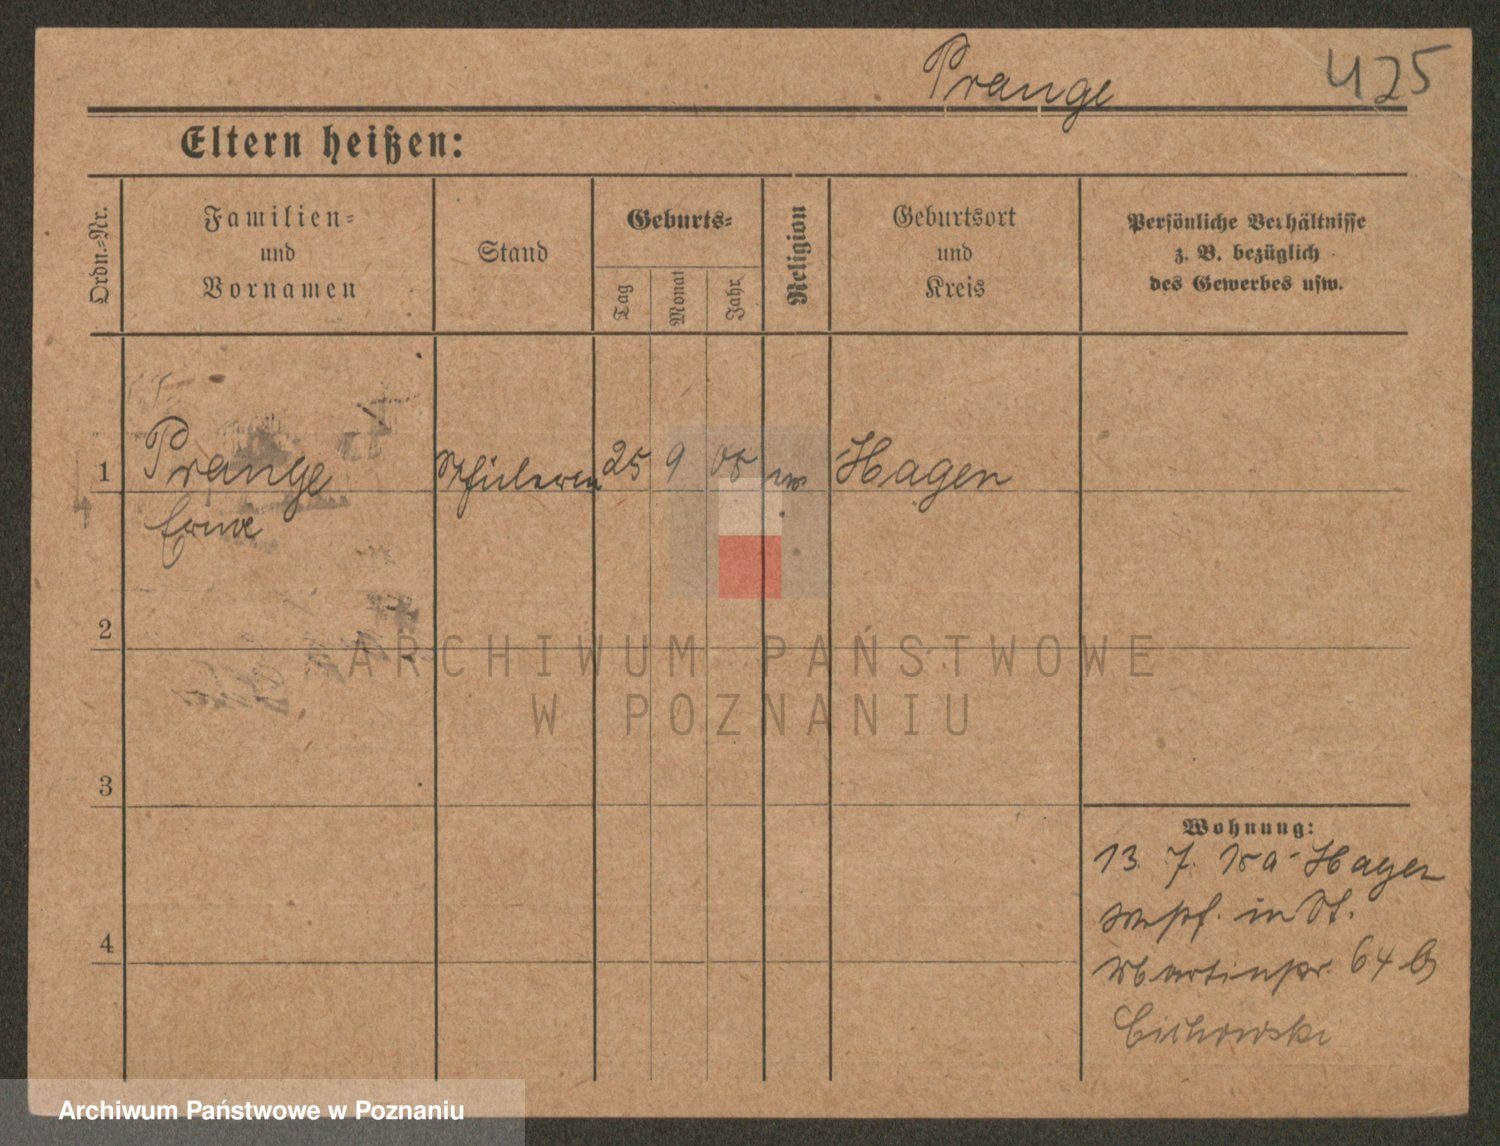 Prange 425
Eltern heißen:
Ordn.-Nr.
Familien-
und
Vornamen
Stand
Geburts-
Tag
Monat
Jahr
Religion
Geburtsort
und
Kreis
Persönliche Verhältnisse
z. B. bezüglich
des Gewerbes usw.
1 Prange Schülerin 25 9 05 Hagen
Erna
2
3
4
Wohnung:
13. 7. Hagen
Westf. in St.
Martinstr. 64 b
Cichowski
ARCHIWUM PAŃSTWOWE
W POZNANIU
Archiwum Państwowe w Poznaniu